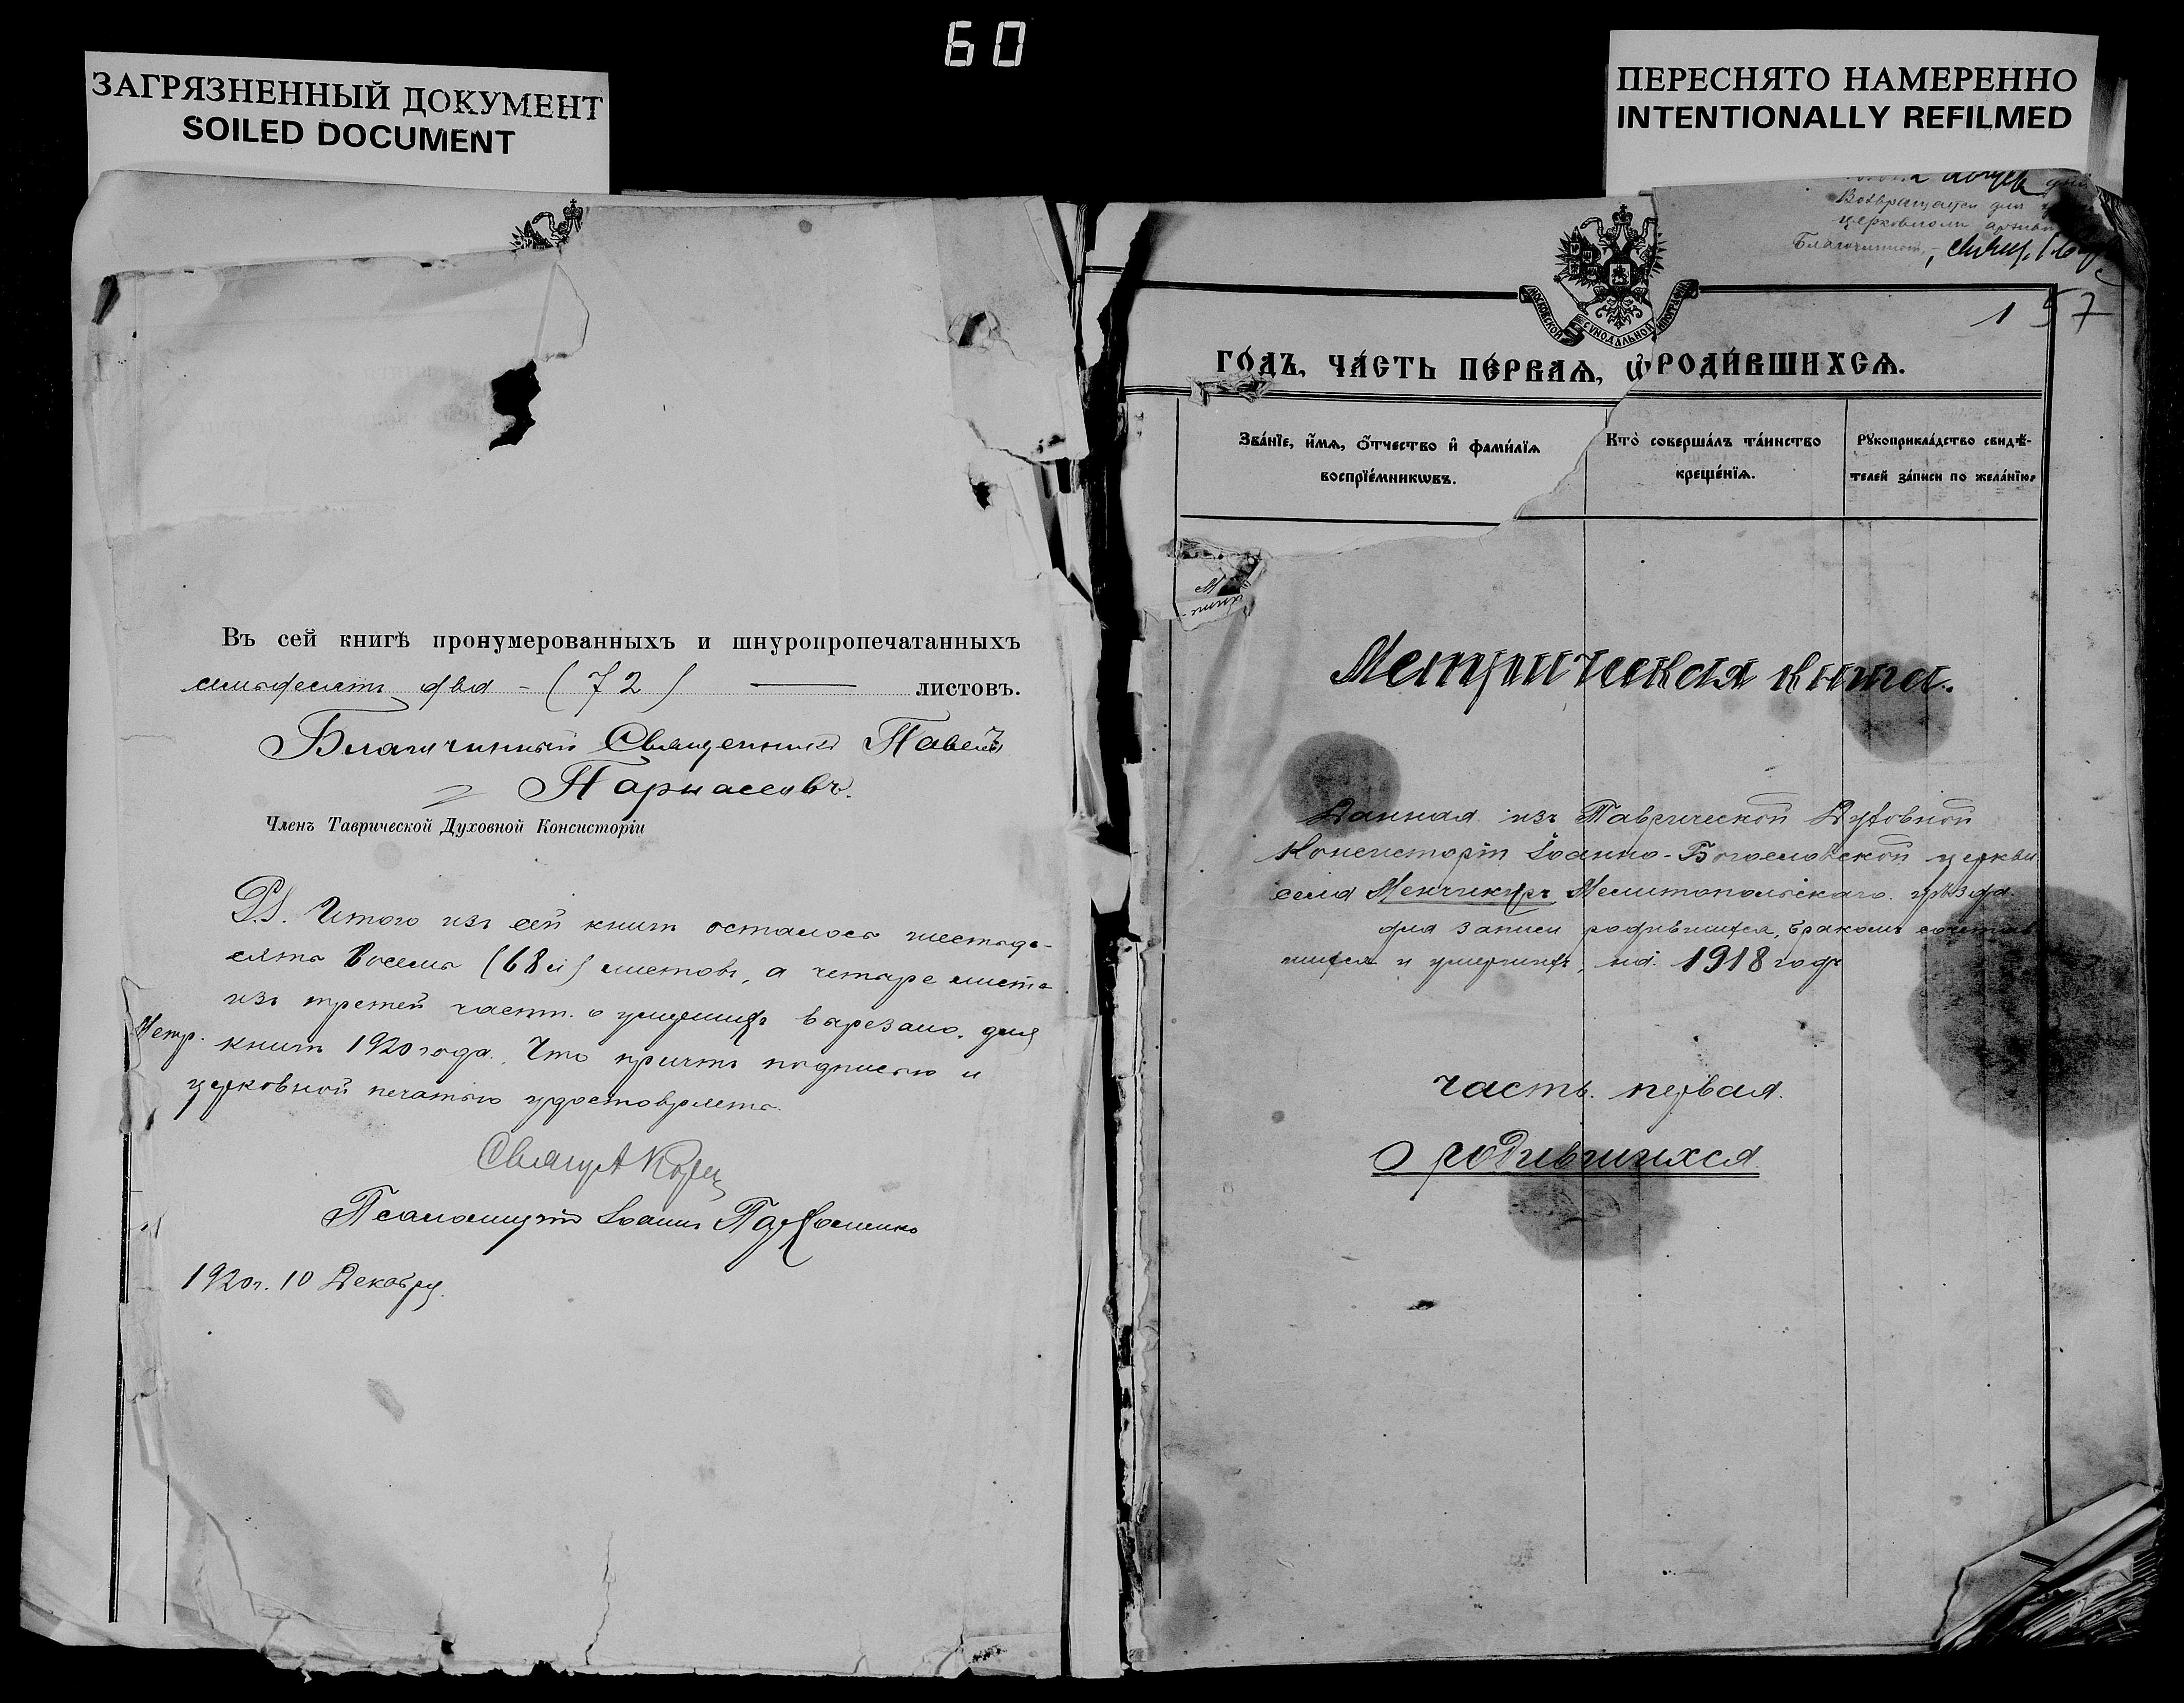 60
ЗАГРЯЗНЕННЫЙ ДОКУМЕНТ
SOILED DOCUMENT
Въ сей книгѣ пронумерованныхъ и шнуропропечатанныхъ
семьдесятъ два - (72) листовъ.
Благочинный Священникъ Павелъ
Парнасовъ.
Членъ Таврической Духовной Консисторіи
P.S. Итого изъ сей книги осталось шестьде-
сятъ восемь (68 л) листовъ, а четыре листа
изъ третей части о умершихъ вырезано для
Метр. книги 1920 года. Что причтъ подписью и
церковной печатью удостоверяетъ.
Свящ А
Псаломщикъ Іоаннъ
1920 г. 10 Декабря.
ПЕРЕСНЯТО НАМЕРЕННО
INTENTIONALLY REFILMED
Возвращается для
церковном
Благочинный, свящ.
157
МОСКОВСКОЙ СѴНОДАЛЬНОЙ ТИПОГРАФІИ
ГО́ДЪ, ЧА́СТЬ ПЕ́РВАѦ, Ѡ РОДИ́ВШИХСѦ.
Зва́нїе, и́мѧ, ѻ҆́тчество и҆ фами́лїѧ
воспрїе́мникѡвъ.
Кто̀ соверша́лъ та́инство
креще́нїѧ.
Рꙋкоприкла́дство свидѣ́-
телей за́писи по жела́нїю.
Метрическая книга.
Данная изъ Таврической Духовной
Консисторіи Іоанно-Богословской церкви
села Менчикуръ Мелитопольскаго уѣзда
для записи родившихся, бракомъ сочетав
шихся и умершихъ, на 1918 годъ
часть первая.
О родившихся